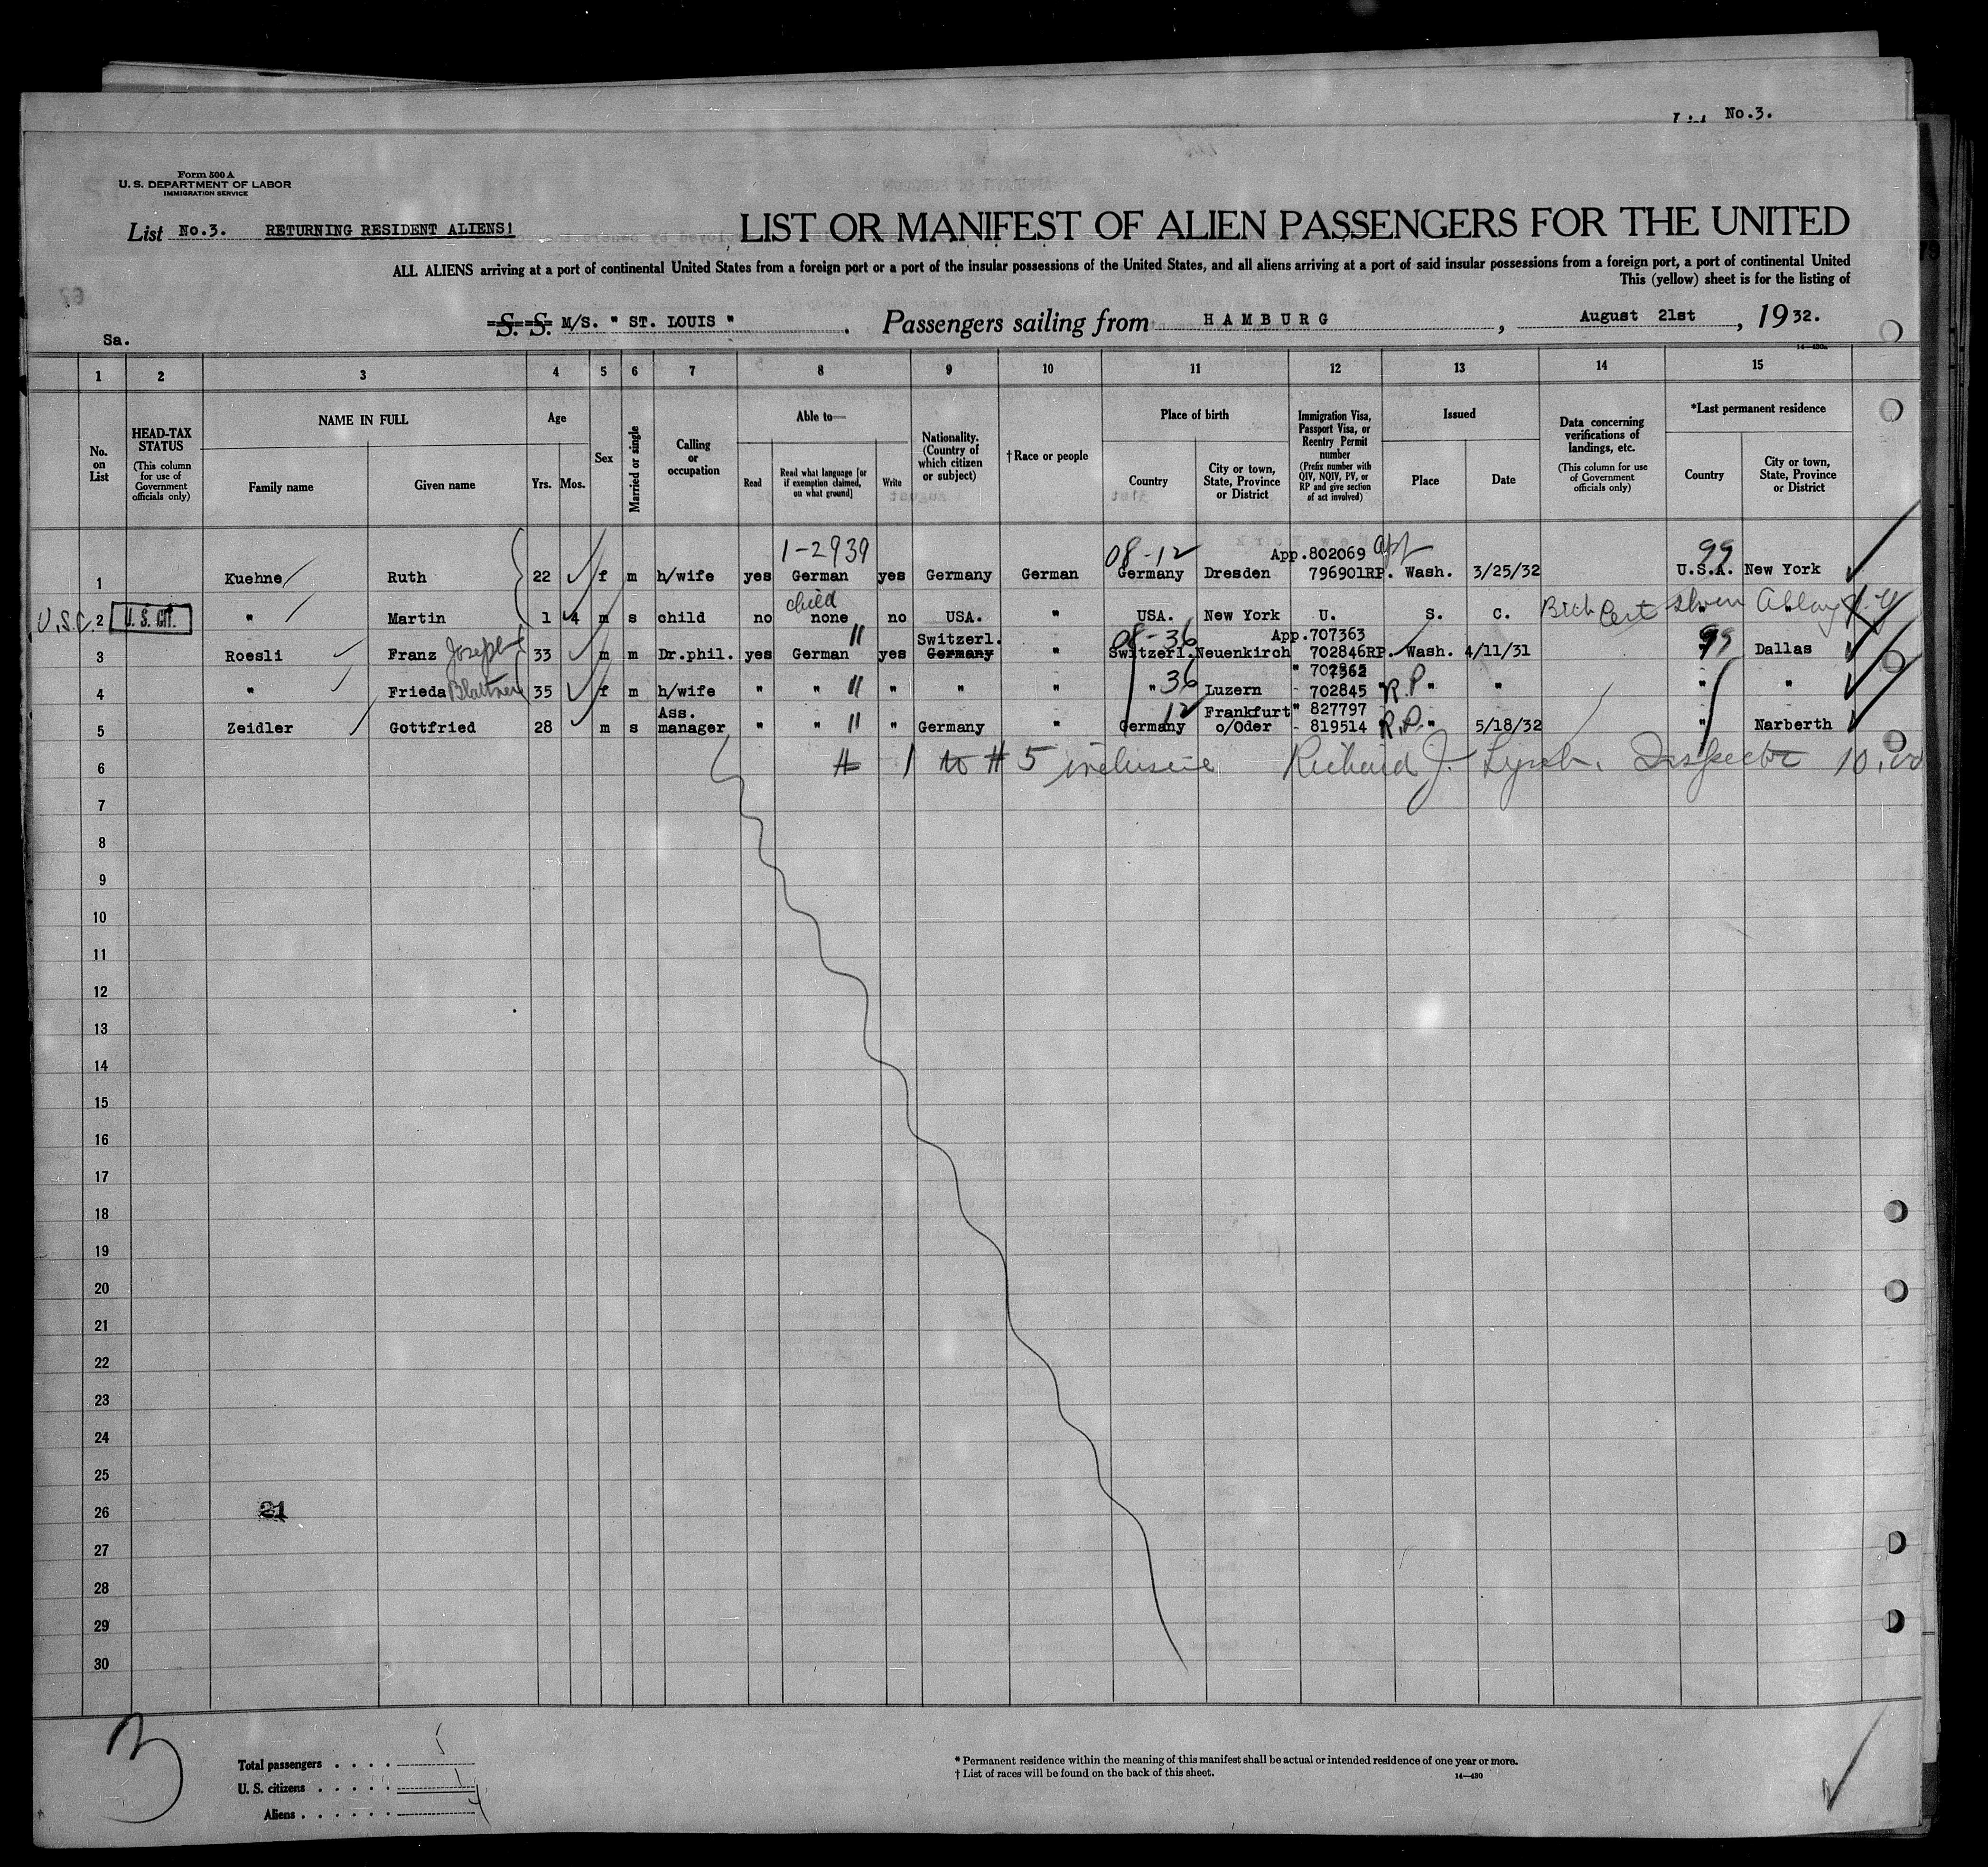 No.3.
Form 500 A
U. S. DEPARTMENT OF LABOR
IMMIGRATION SERVICE
List No.3. RETURNING RESIDENT ALIENS!
LIST OR MANIFEST OF ALIEN PASSENGERS FOR THE UNITED
ALL ALIENS arriving at a port of continental United States from a foreign port or a port of the insular possessions of the United States, and all aliens arriving at a port of said insular possessions from a foreign port, a port of continental United
This (yellow) sheet is for the listing of
S. S. M/S. " ST. LOUIS " . Passengers sailing from HAMBURG , August 21st , 1932.
Sa.
14—430a
1 2 3 4 5 6 7 8 9 10 11 12 13 14 15
No. on List
HEAD-TAX STATUS (This column for use of Government officials only)
NAME IN FULL
Family name
Given name
Age
Yrs. Mos.
Sex
Married or single
Calling or occupation
Able to—
Read
Read what language [or if exemption claimed, on what ground]
Write
Nationality. (Country of which citizen or subject)
†Race or people
Place of birth
Country
City or town, State, Province or District
Immigration Visa, Passport Visa, or Reentry Permit number (Prefix number with QIV, NQIV, PV, or RP and give section of act involved)
Issued
Place
Date
Data concerning verifications of landings, etc. (This column for use of Government officials only)
*Last permanent residence
Country
City or town, State, Province or District
1-2939 08-12 App.802069 99
1 Kuehne Ruth 22 f m h/wife yes German yes Germany German Germany Dresden 796901RP. Wash. 3/25/32 U.S.A. New York
child
U.S.C. 2 U. S. CIT. " Martin 1 4 m s child no none no USA. " USA. New York U. S. C. Birth Cert shown
" Switzerl. 08-36 App.707363 99
3 Roesli Franz Joseph 33 m m Dr.phil. yes German yes Germany " Switzerl. Neuenkirch 702846RP. Wash. 4/11/31 " Dallas
4 " Frieda Blattner 35 f m h/wife " " " " " " " 36 Luzern 702845 R.P " " " "
Ass. Frankfurt " 827797
5 Zeidler Gottfried 28 m s manager " " " " Germany " Germany 12 o/Oder - 819514 R.P. " 5/18/32 " Narberth
6 # 1 to # 5 inclusive Richard J. Lynch, Inspector
7
8
9
10
11
12
13
14
15
16
17
18
19
20
21
22
23
24
25
26 21
27
28
29
30
3
Total passengers . . . . 5
U. S. citizens . . . . . 1
Aliens . . . . . . 4
* Permanent residence within the meaning of this manifest shall be actual or intended residence of one year or more.
† List of races will be found on the back of this sheet.
14—430